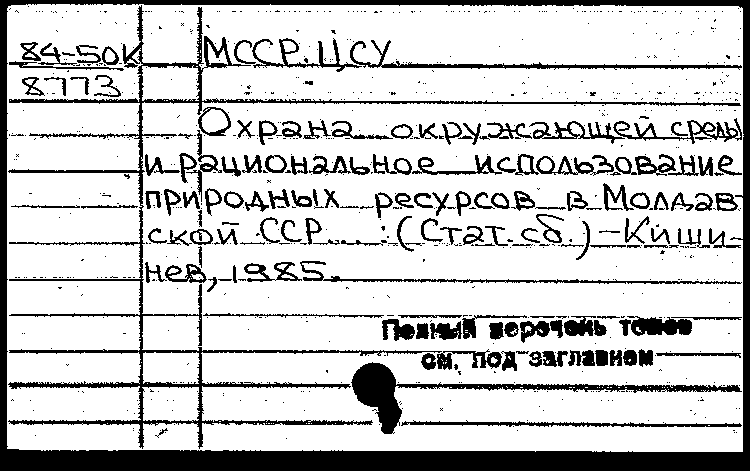 84-50К МССР. ЦСУ.
8773
Охрана окружающей среды
и рациональное использование
природных ресурсов в Молдав-
ской ССР... : (Стат. сб.) - Киши-
нев, 1985.
Полный перечень томов
см. под заглавием